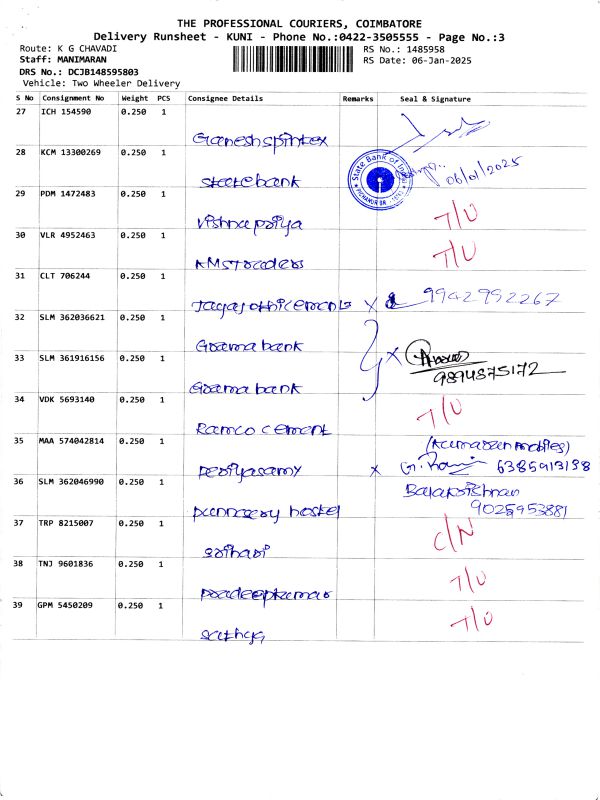 THE PROFESSIONAL COURIERS, COIMBATORE
Delivery Runsheet - KUNI - Phone No.:0422-3505555 - Page No.:3
Route: K G CHAVADI RS No.: 1485958
Staff: MANIMARAN RS Date: 06-Jan-2025
DRS No.: DCJB148595803
Vehicle: Two Wheeler Delivery
S No Consignment No Weight PCS Consignee Details Remarks Seal & Signature
27 ICH 154590 0.250 1
Ganesh spintex
28 KCM 13300269 0.250 1
State Bank of
06/01/2025
state bank
29 PDM 1472483 0.250 1
vishnu priya T/U
30 VLR 4952463 0.250 1
KMS Traders T/U
31 CLT 706244 0.250 1
x 9942992267
32 SLM 362036621 0.250 1
Grama bank
33 SLM 361916156 0.250 1
x
9894375172
Grama bank
34 VDK 5693140 0.250 1
Ramco cement T/U
35 MAA 574042814 0.250 1
Periyasamy x 6385913198
36 SLM 362046990 0.250 1
Balakrishnan
9025953881
hostel
37 TRP 8215007 0.250 1
srihari C/N
38 TNJ 9601836 0.250 1
pradeepkumar T/U
39 GPM 5450209 0.250 1
sathya T/U